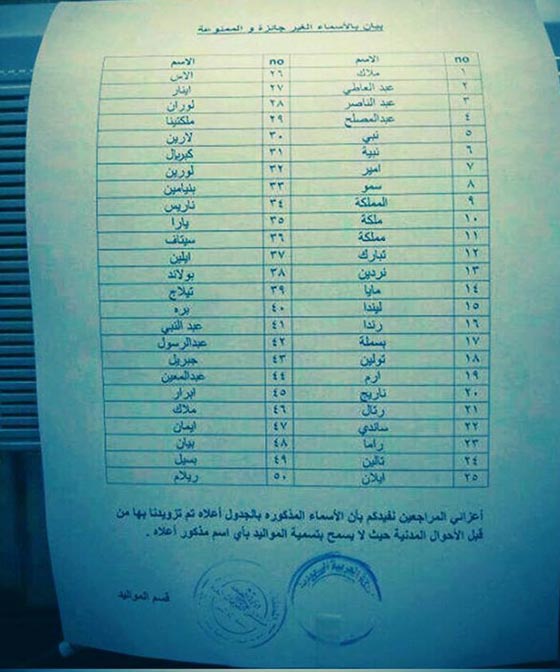 بيان بالأسماء الغير جائزة و الممنوعة
no الاسم no الاسم
١ ملاك ٢٦ الاس
٢ عبد العاطي ٢٧ اينار
٣ عبد الناصر ٢٨ لوران
٤ عبدالمصلح ٢٩ ملكتينا
٥ نبي ٣٠ لارين
٦ نبية ٣١ كبريال
٧ امير ٣٢ لورين
٨ سمو ٣٣ بنيامين
٩ المملكة ٣٤ ناريس
١٠ ملكة ٣٥ يارا
١١ مملكة ٣٦ سيتاف
١٢ تبارك ٣٧ ايلين
١٣ نردين ٣٨ بولاند
١٤ مايا ٣٩ تيلاج
١٥ ليندا ٤٠ بره
١٦ رندا ٤١ عبد النبي
١٧ بسملة ٤٢ عبدالرسول
١٨ تولين ٤٣ جبريل
١٩ ارم ٤٤ عبدالمعين
٢٠ ناريج ٤٥ ابرار
٢١ رتال ٤٦ ملاك
٢٢ ساندي ٤٧ ايمان
٢٣ راما ٤٨ بيان
٢٤ تالين ٤٩ بسيل
٢٥ ايلان ٥٠ ريلام
أعزاني المراجعين نفيدكم بأن الأسماء المذكوره بالجدول أعلاه تم تزويدنا بها من
قبل الأحوال المدنية حيث لا يسمح بتسمية المواليد بأي اسم مذكور أعلاه .
قسم المواليد